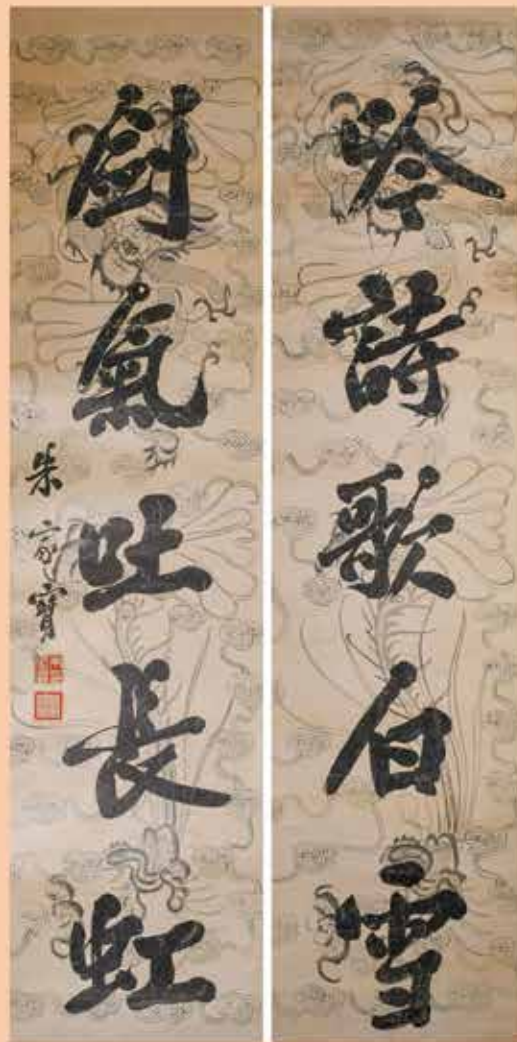 吟詩歌白雪
劍氣吐長虹
朱家寶